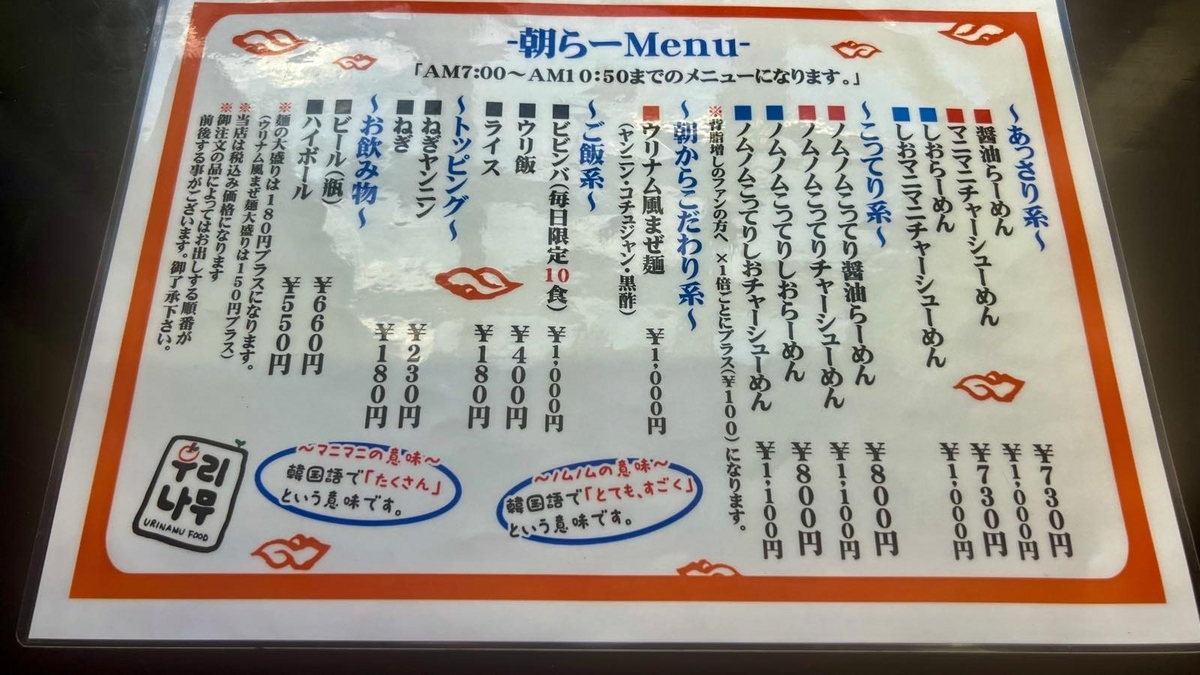 -朝らーMenu-
「AM7:00～AM10:50までのメニューになります。」
～あっさり系～
■醤油らーめん ￥730円
■マニマニチャーシューめん ￥1,000円
■しおらーめん ￥730円
■しおマニマニチャーシューめん ￥1,000円
～こってり系～
■ノムノムこってり醤油らーめん ￥800円
■ノムノムこってりチャーシューめん ￥1,100円
■ノムノムこってりしおらーめん ￥800円
■ノムノムこってりしおチャーシューめん ￥1,100円
※背脂増しのファンの方へ ×1倍ごとにプラス(￥100)になります。
～朝からこだわり系～
■ウリナム風まぜ麺 ￥1,000円
(ヤンニン・コチュジャン・黒酢)
～ご飯系～
■ビビンバ(毎日限定10食) ￥1,000円
■ウリ飯 ￥400円
■ライス ￥180円
～トッピング～
■ねぎヤンニン ￥230円
■ねぎ ￥180円
～お飲み物～
■ビール(瓶) ￥660円
■ハイボール ￥550円
※麺の大盛りは180円プラスになります。
(ウリナム風まぜ麺大盛りは150円プラス)
※当店は税込み価格になります
※御注文の品によってはお出しする順番が
前後する事がございます。御了承下さい。
～ノムノムの意味～
韓国語で「とても、すごく」
という意味です。
～マニマニの意味～
韓国語で「たくさん」
という意味です。
우리
나무
URINAMU FOOD